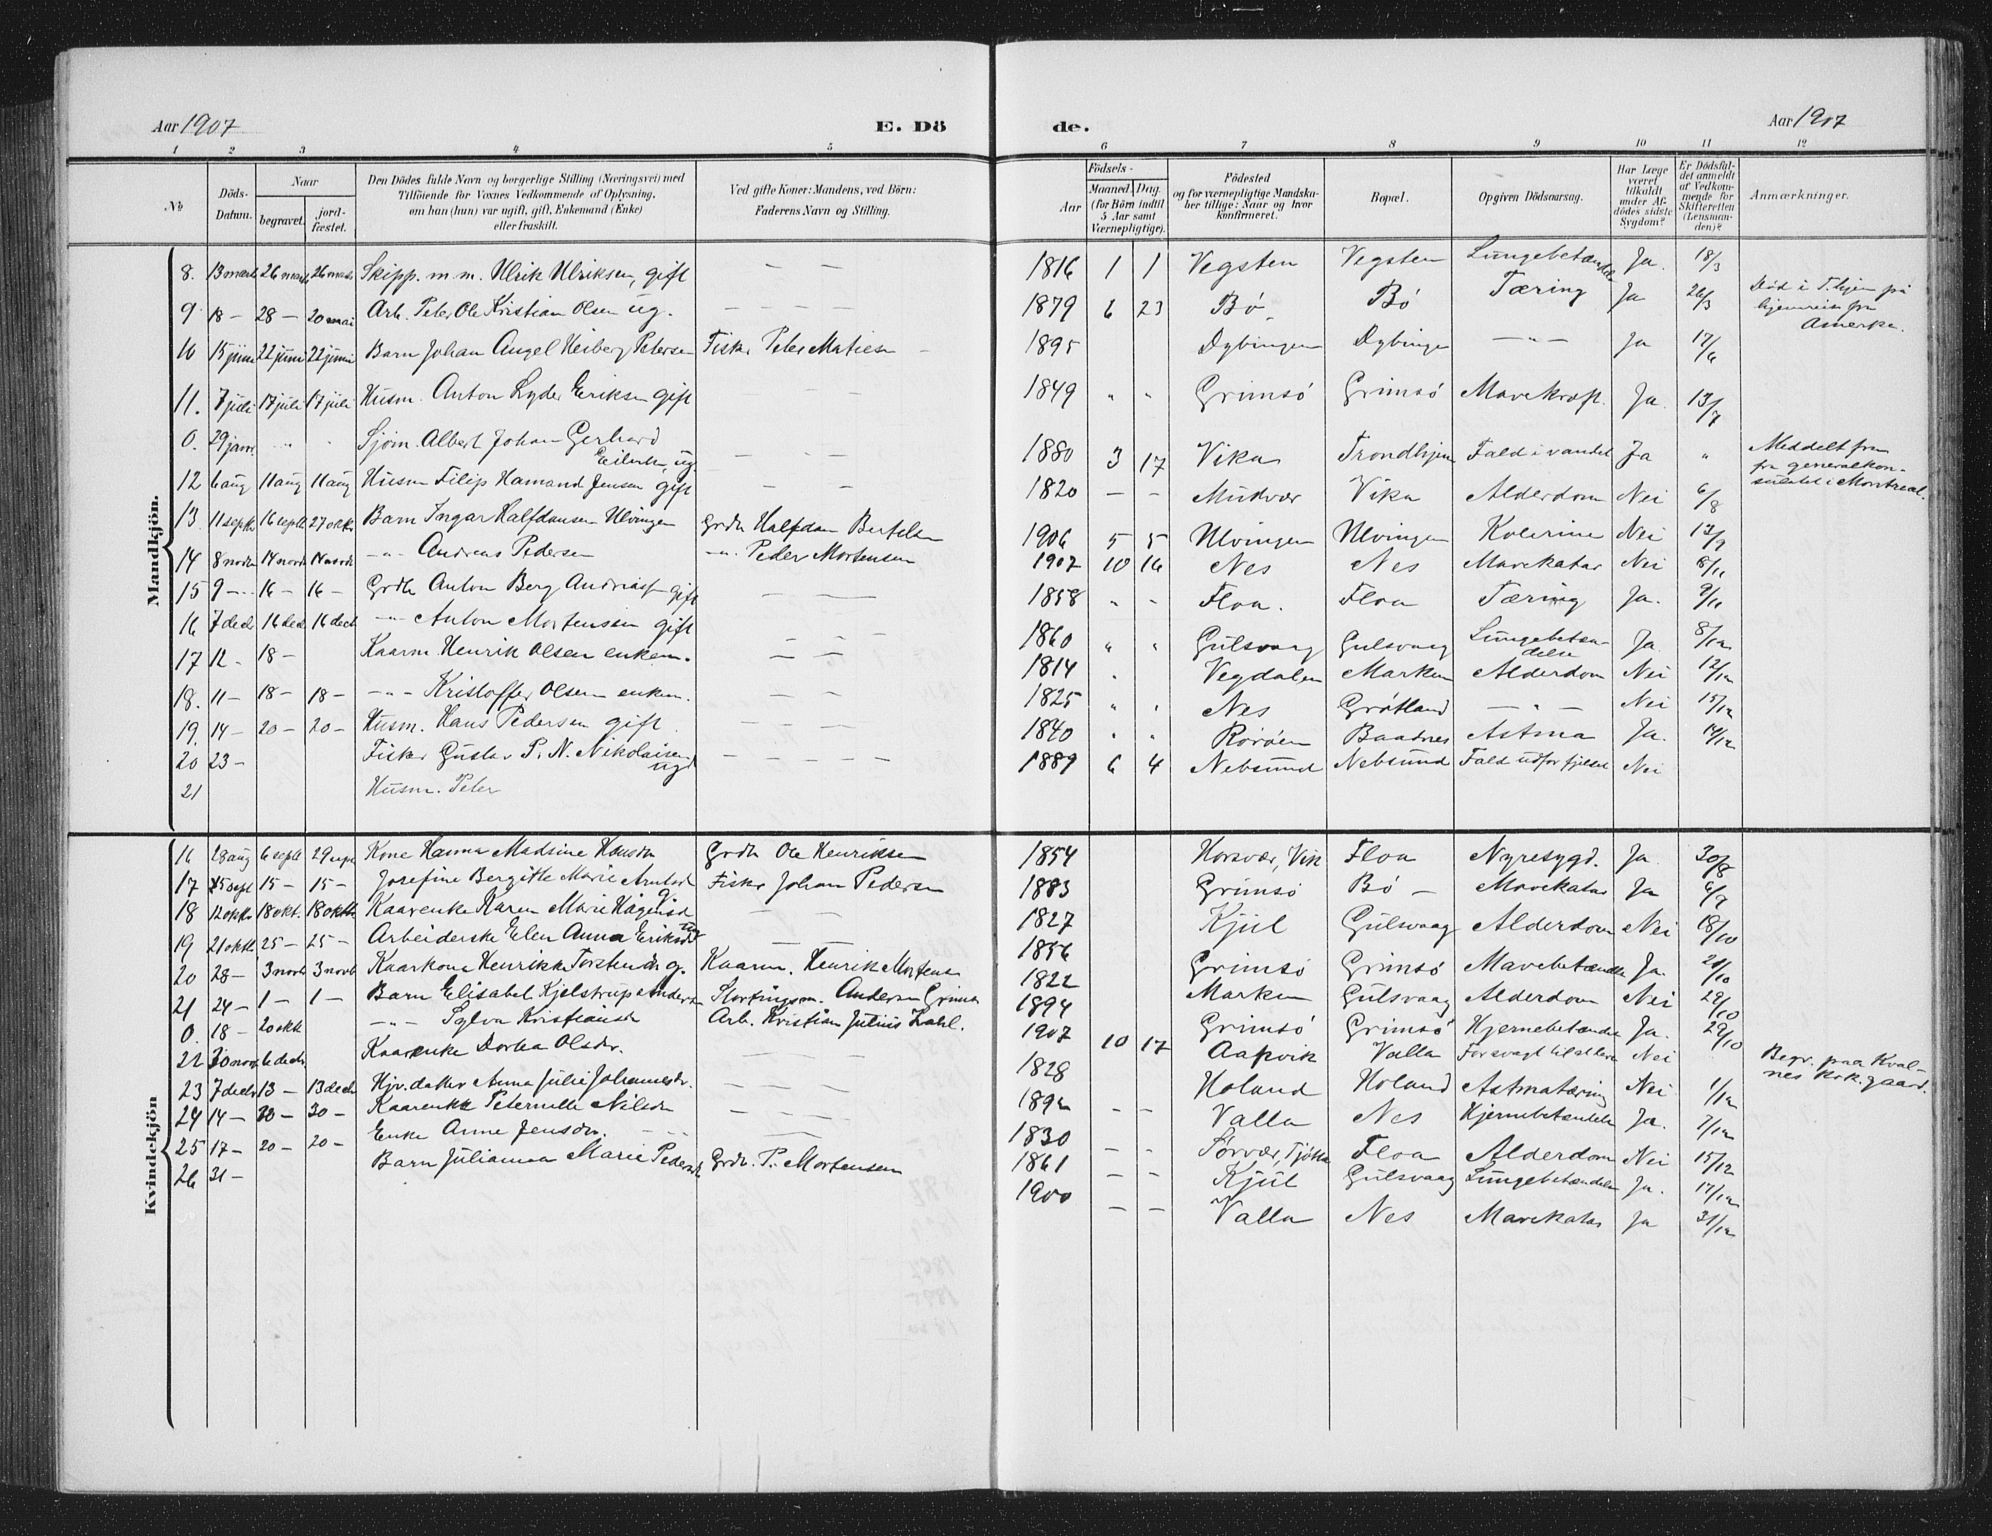 Aar 1907 E. Dö
1 2 3 4 5
№ Döds-Datum. Naar begravet. jord-fæstet. Den Dödes fulde Navn og borgerlige Stilling (Næringsvei) med Tilföiende for Voxnes Vedkommende af Oplysning, om han (hun) var ugift, gift, Enkemand (Enke) eller fraskilt. Ved gifte Koner: Mandens, ved Börn: Faderens Navn og Stilling.
Mandkjön.
8. 13 marts 26 marts 26 marts Skipp. m.m. Ulrik Ulriksen, gift — —
9 18 - 28 - 20 mai Arb. Peter Ole Kristian Olsen ug. — —
10 15 juni 22 juni 22 juni Barn Johan Angel Heiberg Petersen Fisker Peter Matiesen
11. 7 juli 17 juli 17 juli Husm. Anton Lyder Eriksen gift — —
0. 29 jan. " " Sjøm. Albert Johan Gerhard
Eilertsen, ug.
12 6 aug 11 aug 11 aug Husm Filip Hamand Jensen gift — —
13. 11 septbr 16 septb 27 oktbr Barn Ingar Halfdansen Ulvingen Grdbr Halfdan Bertelsen
14 8 novbr 14 novbr 14 novbr -"- Andreas Pedersen -"- Peder Mortensen
15 9 - 16 - 16 - Grdbr Anton Berg Andreass gift — — —
16 7 decbr 16 decbr 16 decb -"- Anton Mortensen gift
17 12 - 18 - Kaarm Henrik Olsen enkem. — —
18. 11 - 18 - 18 - -"- Kristoffer Olsen enkem. — — —
19. 14 - 20 - 20 - Husm. Hans Pedersen gift. — — —
20 23 - Fisker Gustav P. N. Nikolaisen
ug — — — —
21 Husm. Peter
Kvindekjön
16 28 aug 6 septb 29 sept Kone Hanna Madsine Hansdr Grdbr Ole Henriksen
17 5 sept 15 - 15 - Josefine Bergitte Marie Arntsd Fisker Johan Pedersen
18 12 oktbr 18 okt. 18 oktb Kaarenke Karen Marie Hagensd — —
19 21 oktb 25 - 25 - Arbeiderske Elen Anna Eriksdr — —
20 28 - 3 novb 3 novb Kaarkone Henrikke Torstensdr g. Kaarm. Henrik Mortens
21 24 - 1 - 1 - Barn Elisabet Kjelstrup Andersen Stortingsm. Andersen Grimsø
0. 18 - 20 oktb -"- Sylva Kristiansdr Arb. Kristian Julius Zahl.
22 30 nov. 6 decbr Kaarenke Dortea Olsdr. — —
23 7 decbr 13 - 13 decb Hjv. datter Anna Julie Johannesdr. — — —
24 14 - 30 - 30 - Kaarenke Peternille Nilsdr — — —
25 17 - 20 - 20 - Enke Anne Jensdr. — —
26 31 - Barn Julianna Marie Pedersdr Grdbr. P. Mortensen
de. Aar 1907
6 7 8 9 10 11 12
Födsels- Aar Maaned. Dag. (for Börn indtil 5 Aar samt Værnepligtige). Födested og for værnepligtige Mandskaber tillige: Naar og hvor konfirmeret. Bopæl. Opgiven Dödsaarsag. Har Læge været tilkaldt under Afdödes sidste Sygdom? Er Dödsfaldet anmeldt af Vedkommende for Skifteretten (Lensmanden)? Anmærkninger.
1816 1 1 Vegsten Vegsten Lungebetændelse Ja. 18/3
1879 6 23 Bø Bø Tæring Ja 26/3 Død i T.hjem på
hjemreise fra
Amerka.
1895 Dybingen Dybingen -"- Ja 17/6
1849 " " Grimsø Grimsø Mavekræft. Ja. 13/7
1880 3 17 Vika Trondhjem Fald i vandet Ja " Meddelt fra
fra generalkon-
sulatet i Montreal.
1820 — — Mudvær Vika Alderdom Nei 6/8
1906 5 5 Ulvingen Ulvingen Kolerine Nei 12/9
1907 10 16 Nes Nes Mavekatar Nei 8/11
1858 " " Floa. Floa Tæring Ja. 9/11
1860 " " Gulsvaag Gulsvaag Lungebetæn-
delse Ja. 8/12
1814 " Vegdalen Marken Alderdom Nei 12/12
1825 " " Nes Grøtland -"- Nei 15/12
1840 " " Rorøen Baadnes Astma Ja. 14/12
1889 6 4 Nebsund Nebsund Fald udfor fjeldet Nei
1854 Horsvær, Vik Floa Nyresygd. Ja. 30/8
1883 Grimsø Bø — Mavekatar Ja 6/9
1827 Kjul Gulsvaag Alderdom Nei 18/10
1856 Grimsø Grimsø Mavebetændelse Ja. 21/10
1822 Marken Gulsvaag Alderdom Nei 29/10
1894 Grimsø Grimsø Hjernebetændelse Ja. 29/10
1907 10 17 Aakvik Valla For svagt til at leve Nei Begr. paa Kval-
nes kirk.gaard.
1828 Høland Høland Astmatæring Nei 1/12
1892 — — Valla Nes Hjernebetændelse Ja. 7/12
1830 — — Sørvær, Tjøtta Floa Alderdom Nei 15/12
1861 — — Kjul Gulsvaag Lungebetændelse Ja. 17/12
1900 — — Valla Nes Mavekatar Ja 31/12